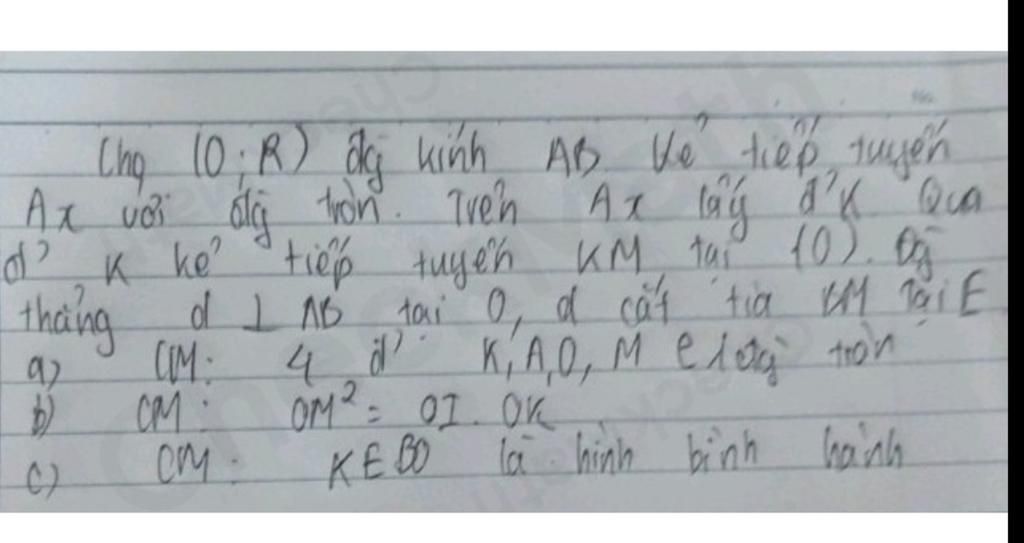 Cho (O; R) đg kính AB. Kẻ tiếp tuyến
Ax với đg tròn. Trên Ax lấy đ' K. Qua
đ' K kẻ tiếp tuyến KM tại (O). Đg
thẳng d ⊥ AB tại O, d cắt tia BM tại E
a) CM: 4 đ' K, A, O, M e 1 đg tròn
b) CM: OM² = OI. OK
c) CM: KEBO là hình bình hành